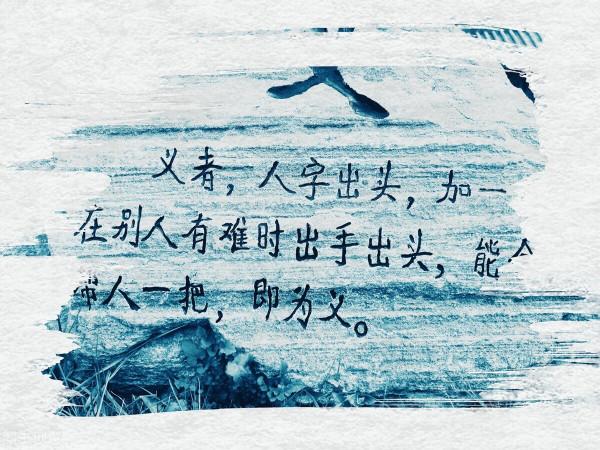 义者，人字出头，加一
在别人有难时出手出头，能
帮人一把，即为义。